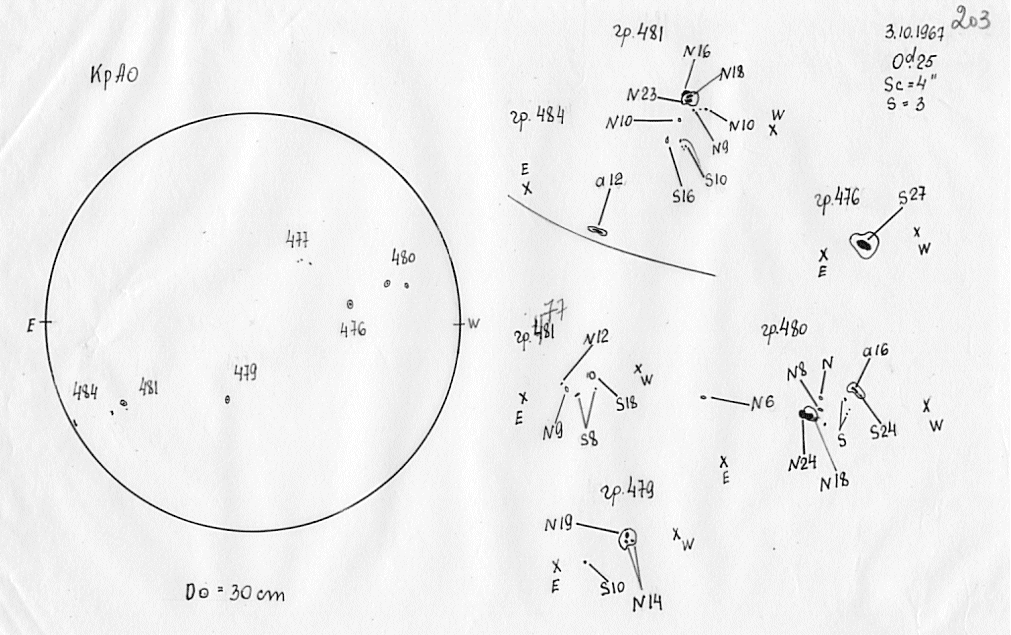 203
3.10.1967
0d.25
Sc = 4"
S = 3
КрАО
477
480
476
E
W
479
484
481
D⊙ = 30 cm
гр. 481
N16
N18
N23
N10
N10
N9
S10
S16
W
X
гр. 484
E
X
a12
гр. 476
S27
X
E
X
W
77
гр. 481
N12
X
W
X
E
N9
S8
S18
гр. 480
a16
N8
N
N6
S
S24
N24
N18
X
E
X
W
гр. 479
N19
X
W
X
E
S10
N14